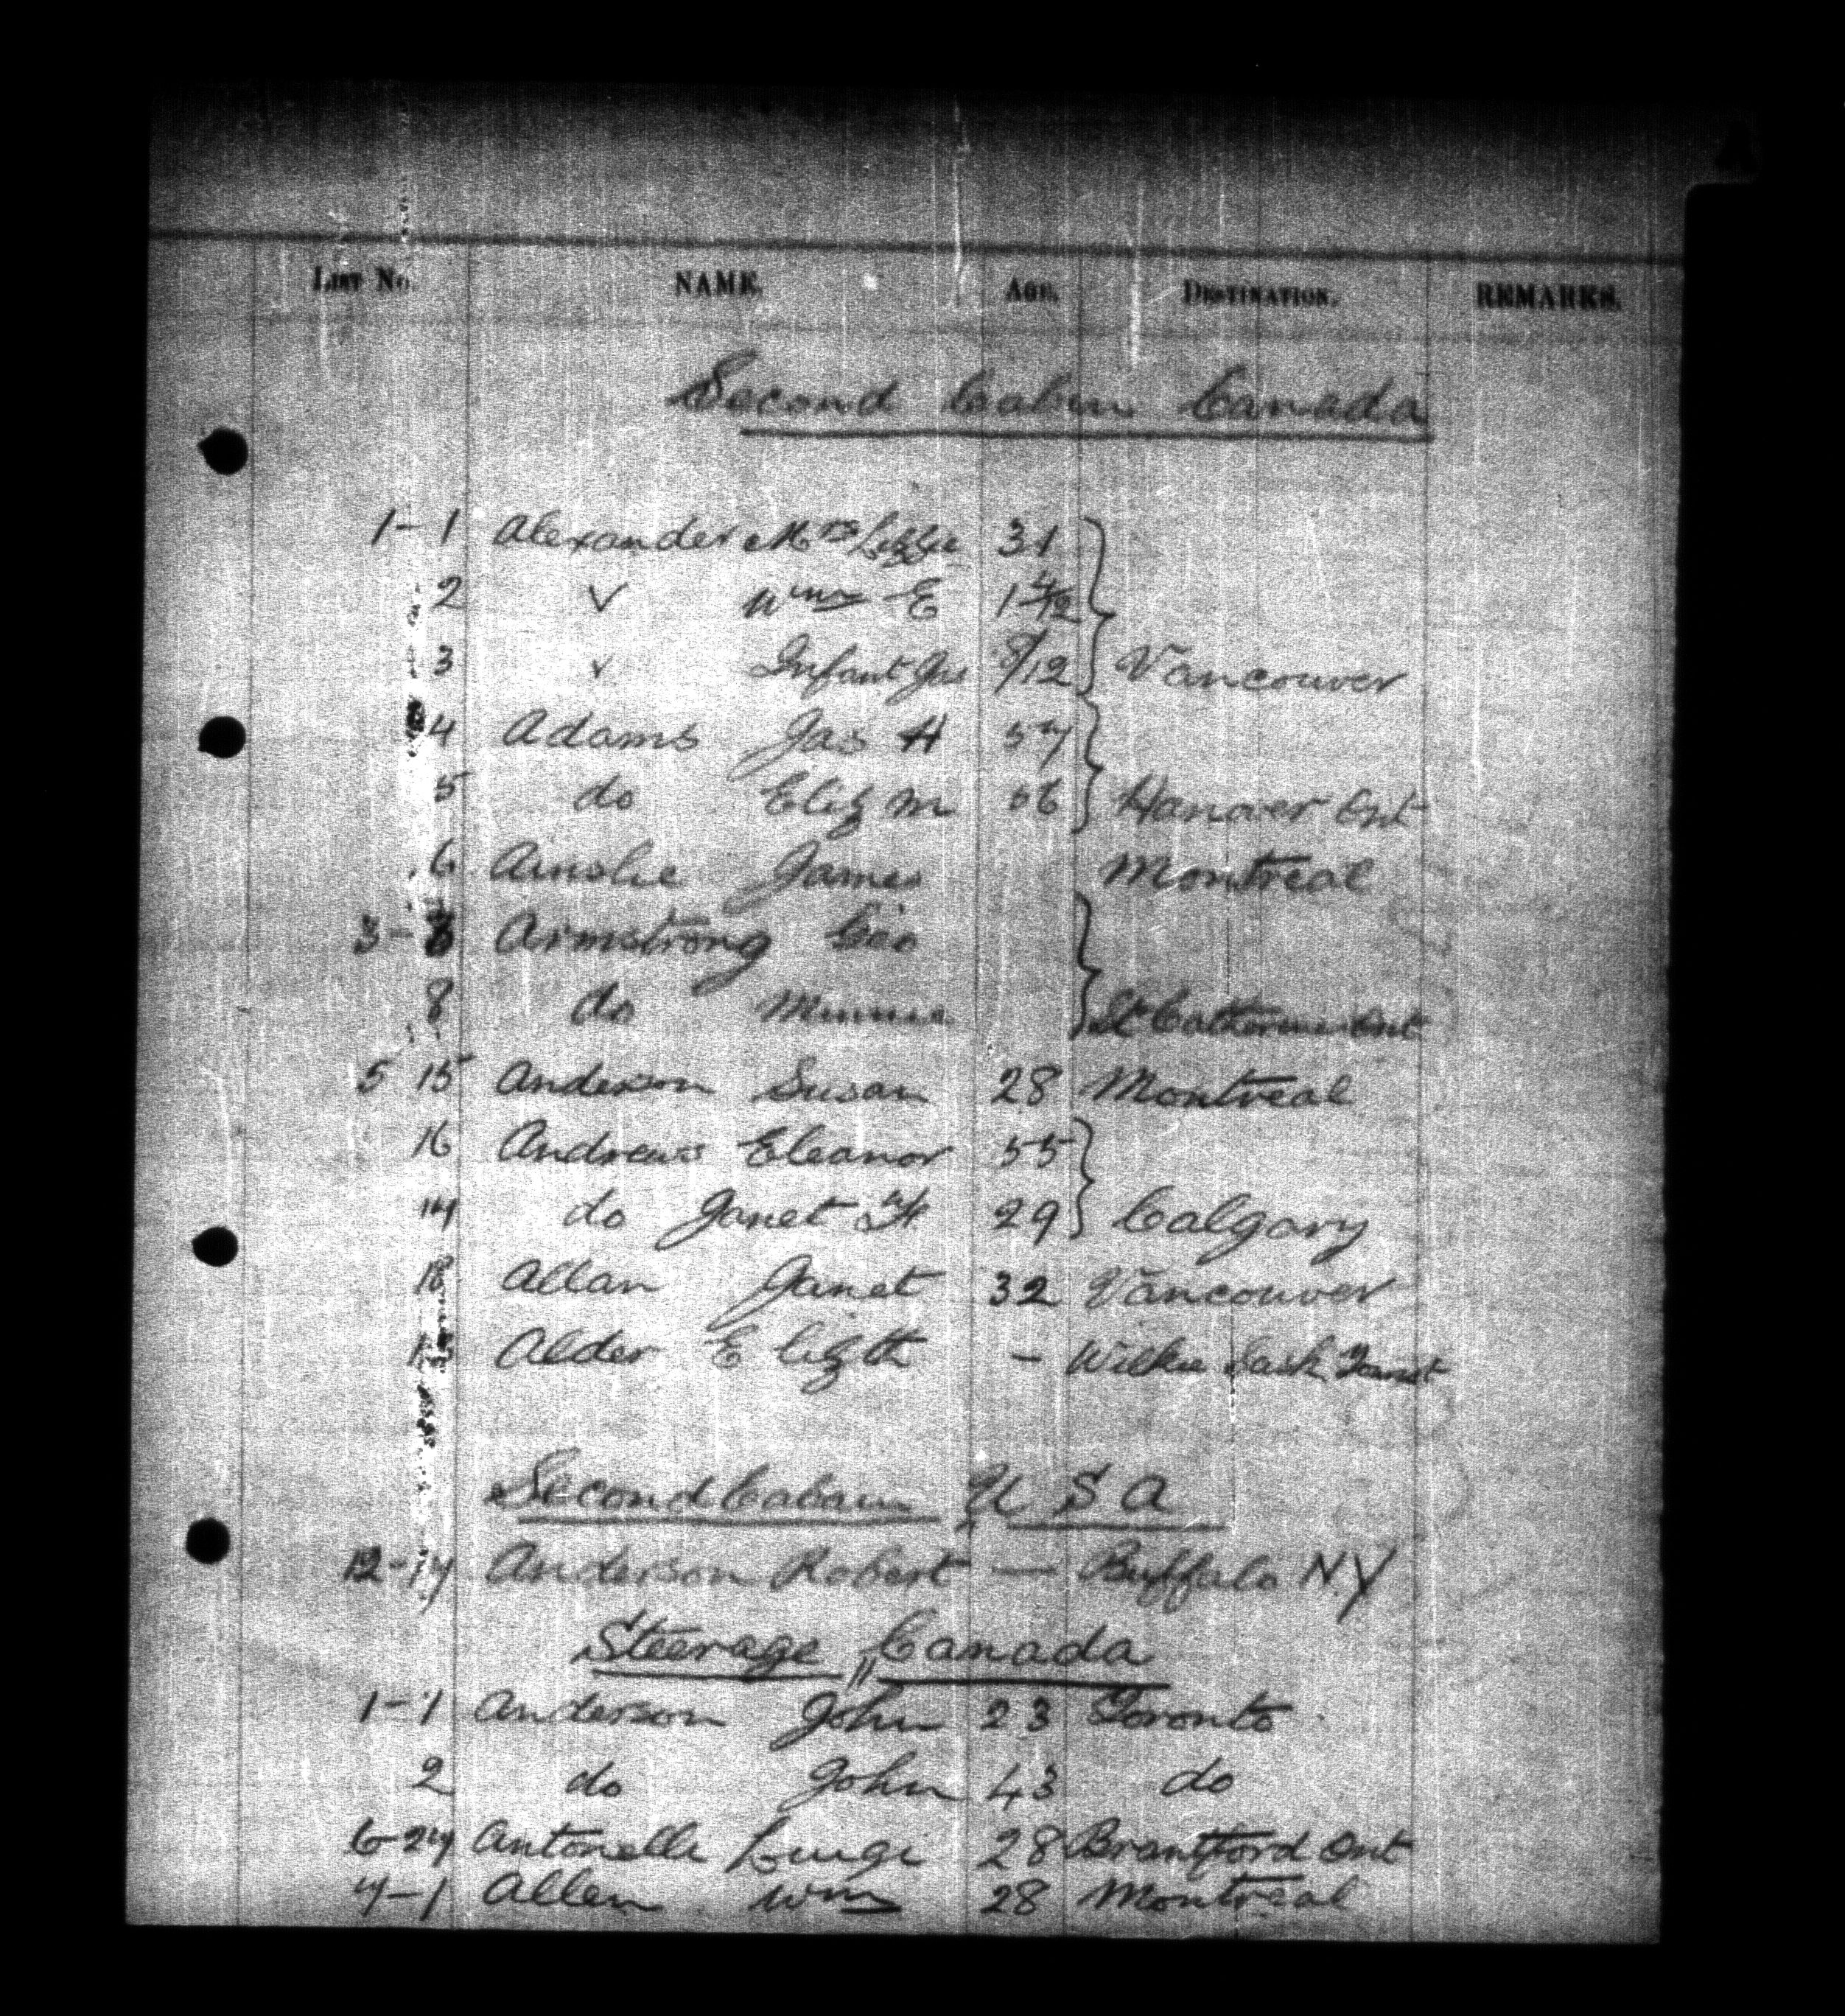 LIST No. NAME. AGE. DESTINATION. REMARKS.
Second Cabin Canada
1-1 Alexander Mrs Lizzie 31
2 v Wm E 1 4/12
3 v Infant Jas 8/12 Vancouver
4 Adams Jas H 57
5 do Eliz M 56 Hanover Ont
6 Ainslie James Montreal
3- Armstrong Geo
8 do Minnie St Catherines Ont
5 15 Anderson Susan 28 Montreal
16 Andrews Eleanor 55
17 do Janet 29 Calgary
18 Allan Janet 32 Vancouver
Alder Elizth - Wilkie Sask
Second Cabin U S A
12-17 Anderson Robert — Buffalo N.Y
Steerage Canada
1-1 Anderson John 23 Toronto
2 do John 43 do
6-27 Antonelli Luigi 28 Brantford Ont
7-1 Allen Wm 28 Montreal